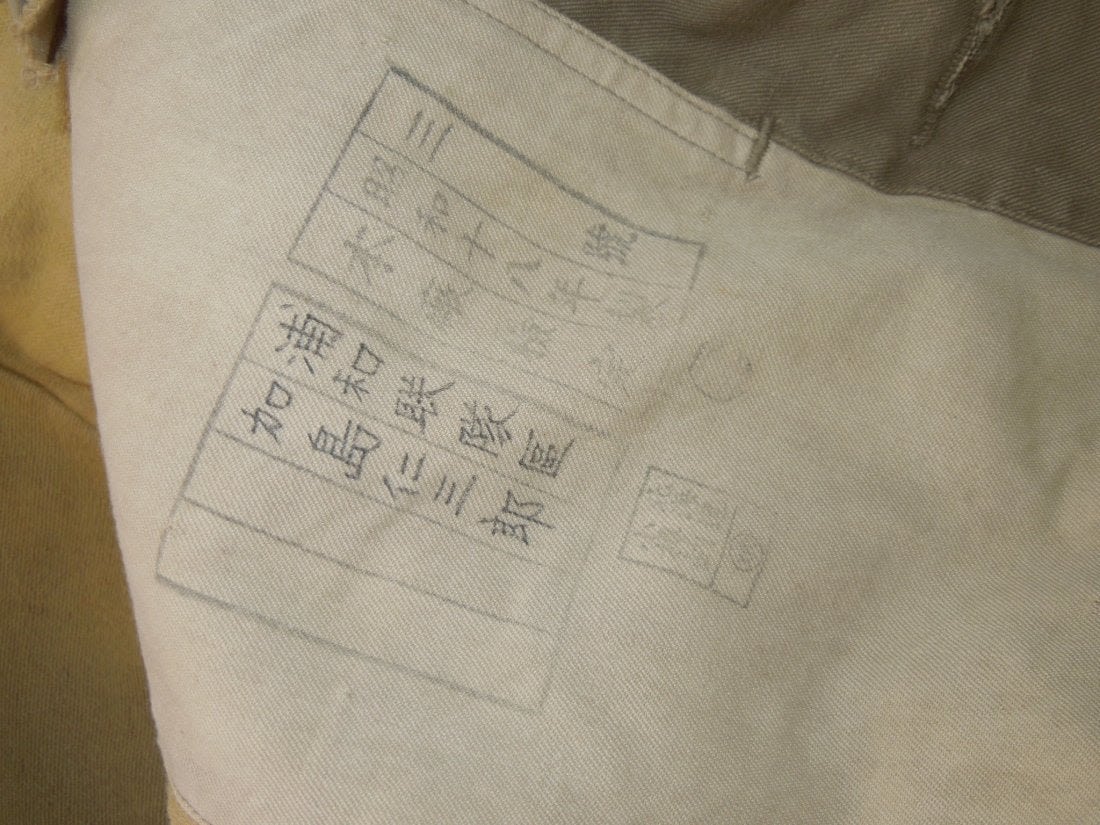 三號
昭和十八年製
本廠 定
浦和联隊區
加島仁三郎